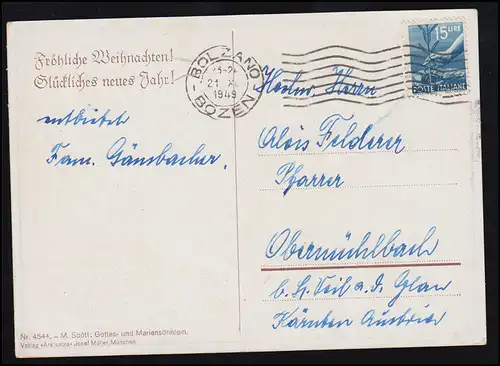 Fröhliche Weihnachten!
Glückliches neues Jahr!
entbietet
Fam. Gänsbacher.
BOLZANO
21. XII.
1949
BOZEN
15 LIRE
POSTE ITALIANE
Hochw. Herrn
Alois Felderer
Pfarrer
Obermühlbach
b. St. Veit a. d. Glan
Kärnten Austria
Nr. 4544. – M. Spötl: Gottes- und Mariensöhnlein.
Verlag «Ars sacra» Josef Müller, München